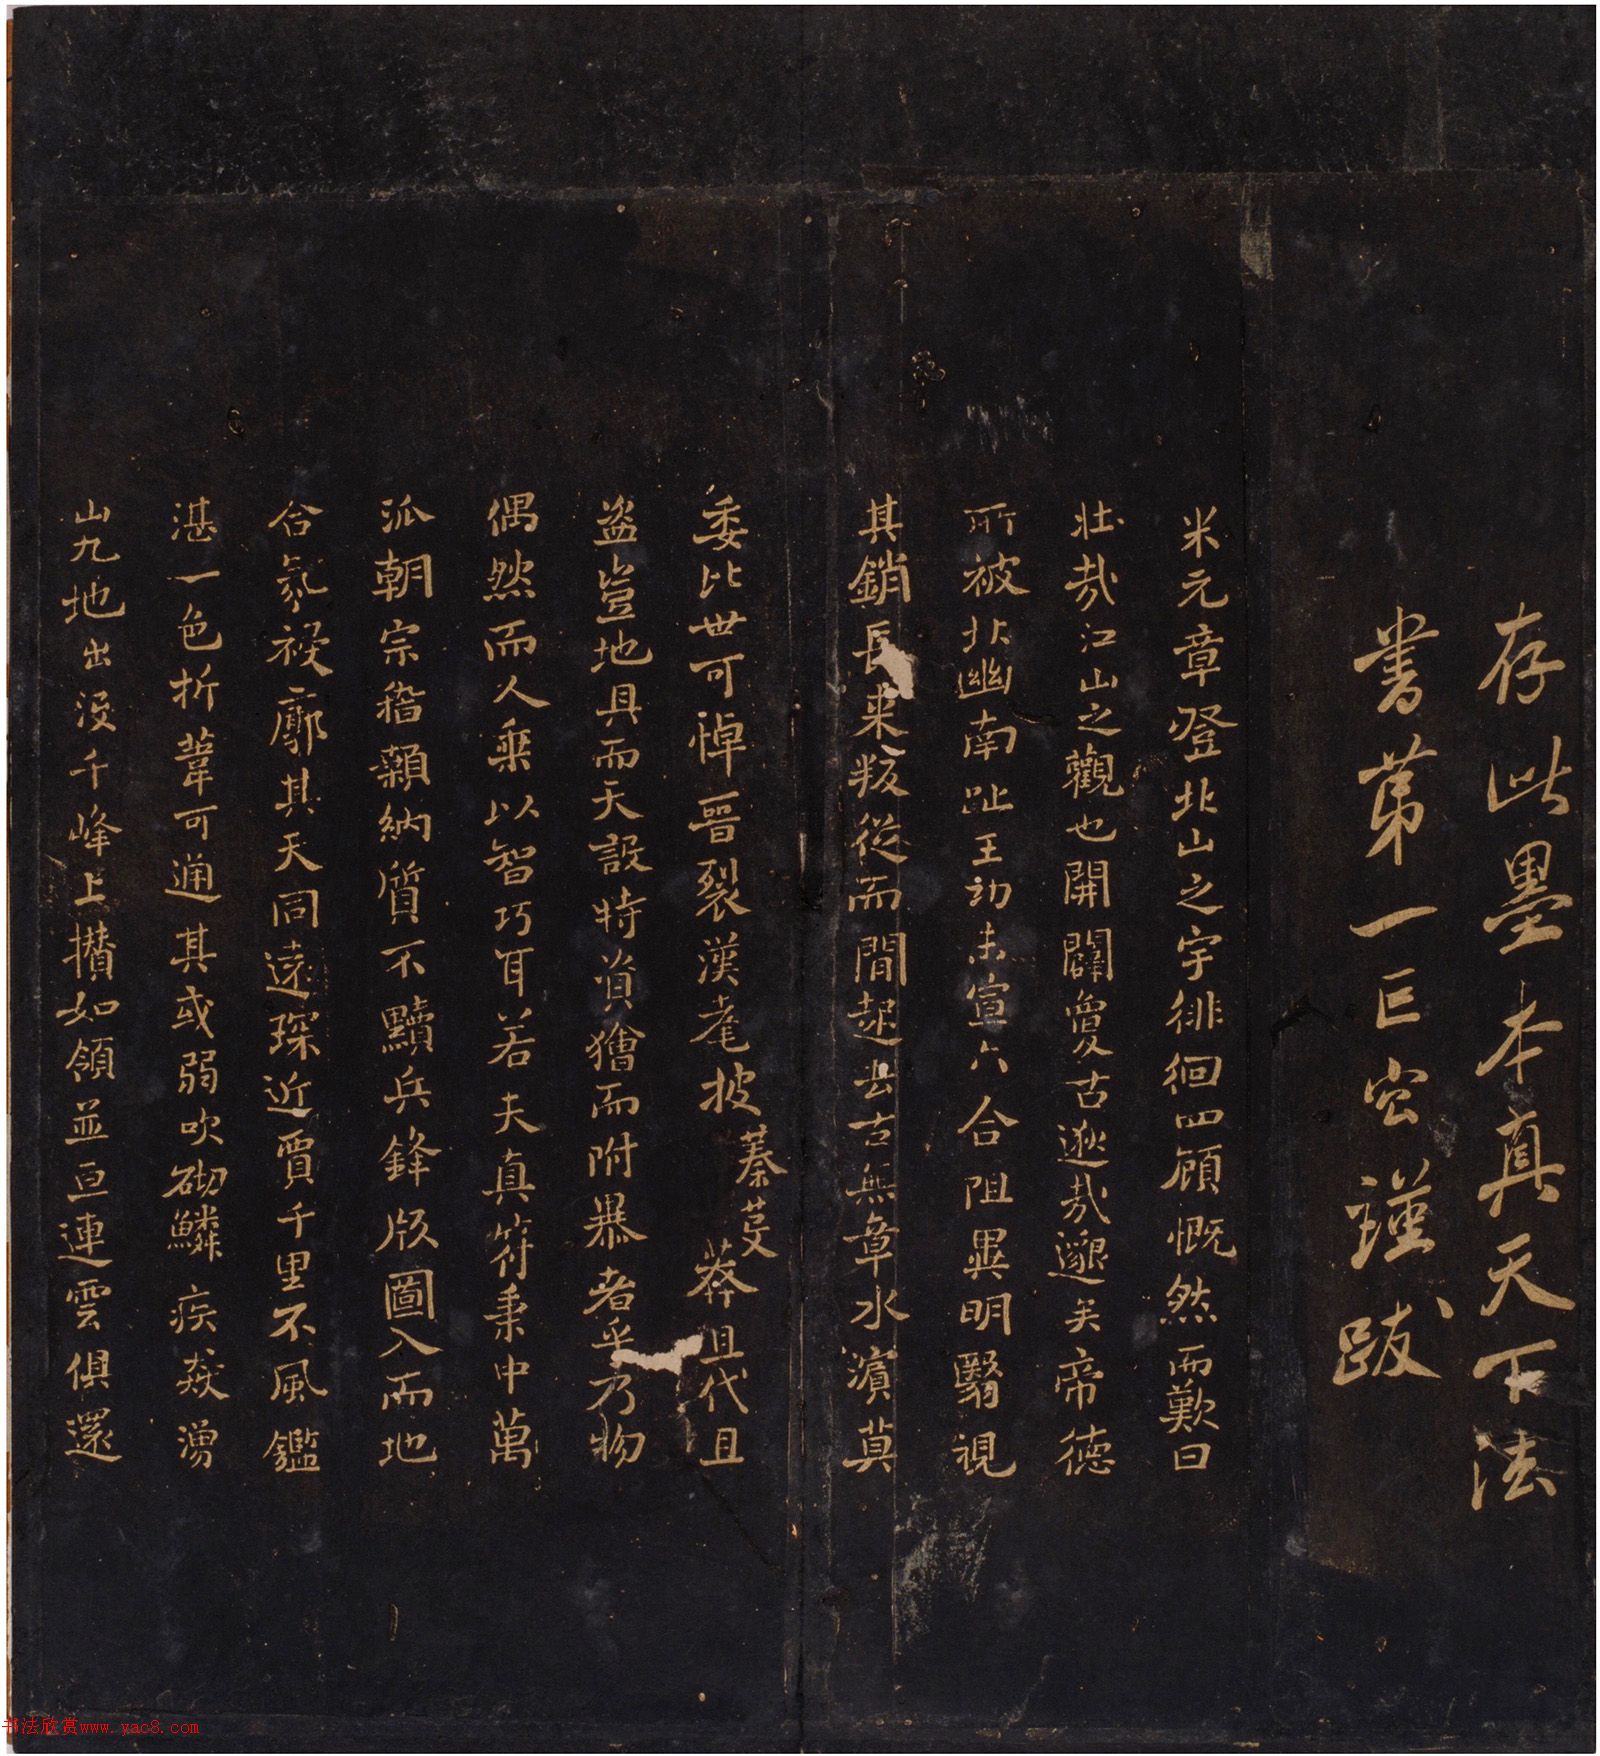 存此墨本真天下法
書第一謹跋
米元章登北山之宇徘徊四顧慨然而歎曰
壯哉江山之觀也開闢敻古逖哉邈矣帝德
所被北幽南趾王功未宣六合阻異明翳視
其銷長來叛從而間起去古無章水濵莫
委比世可悼晉裂漢耄披蓁芟莽且代且
盗豈地具而天設特資獪而附暴者乎乃物
偶然而人乘以智巧耳若夫真符秉中萬
派朝宗稽顙納質不黷兵鋒版圖入而地
合氛祲廓其天同遠琛近賈千里不風鑑
湛一色折葦可通其或弱吹砌鱗疾猋湧
山九地出没千峰上攢如領並亘連雲俱還
书法欣赏www.yac8.com